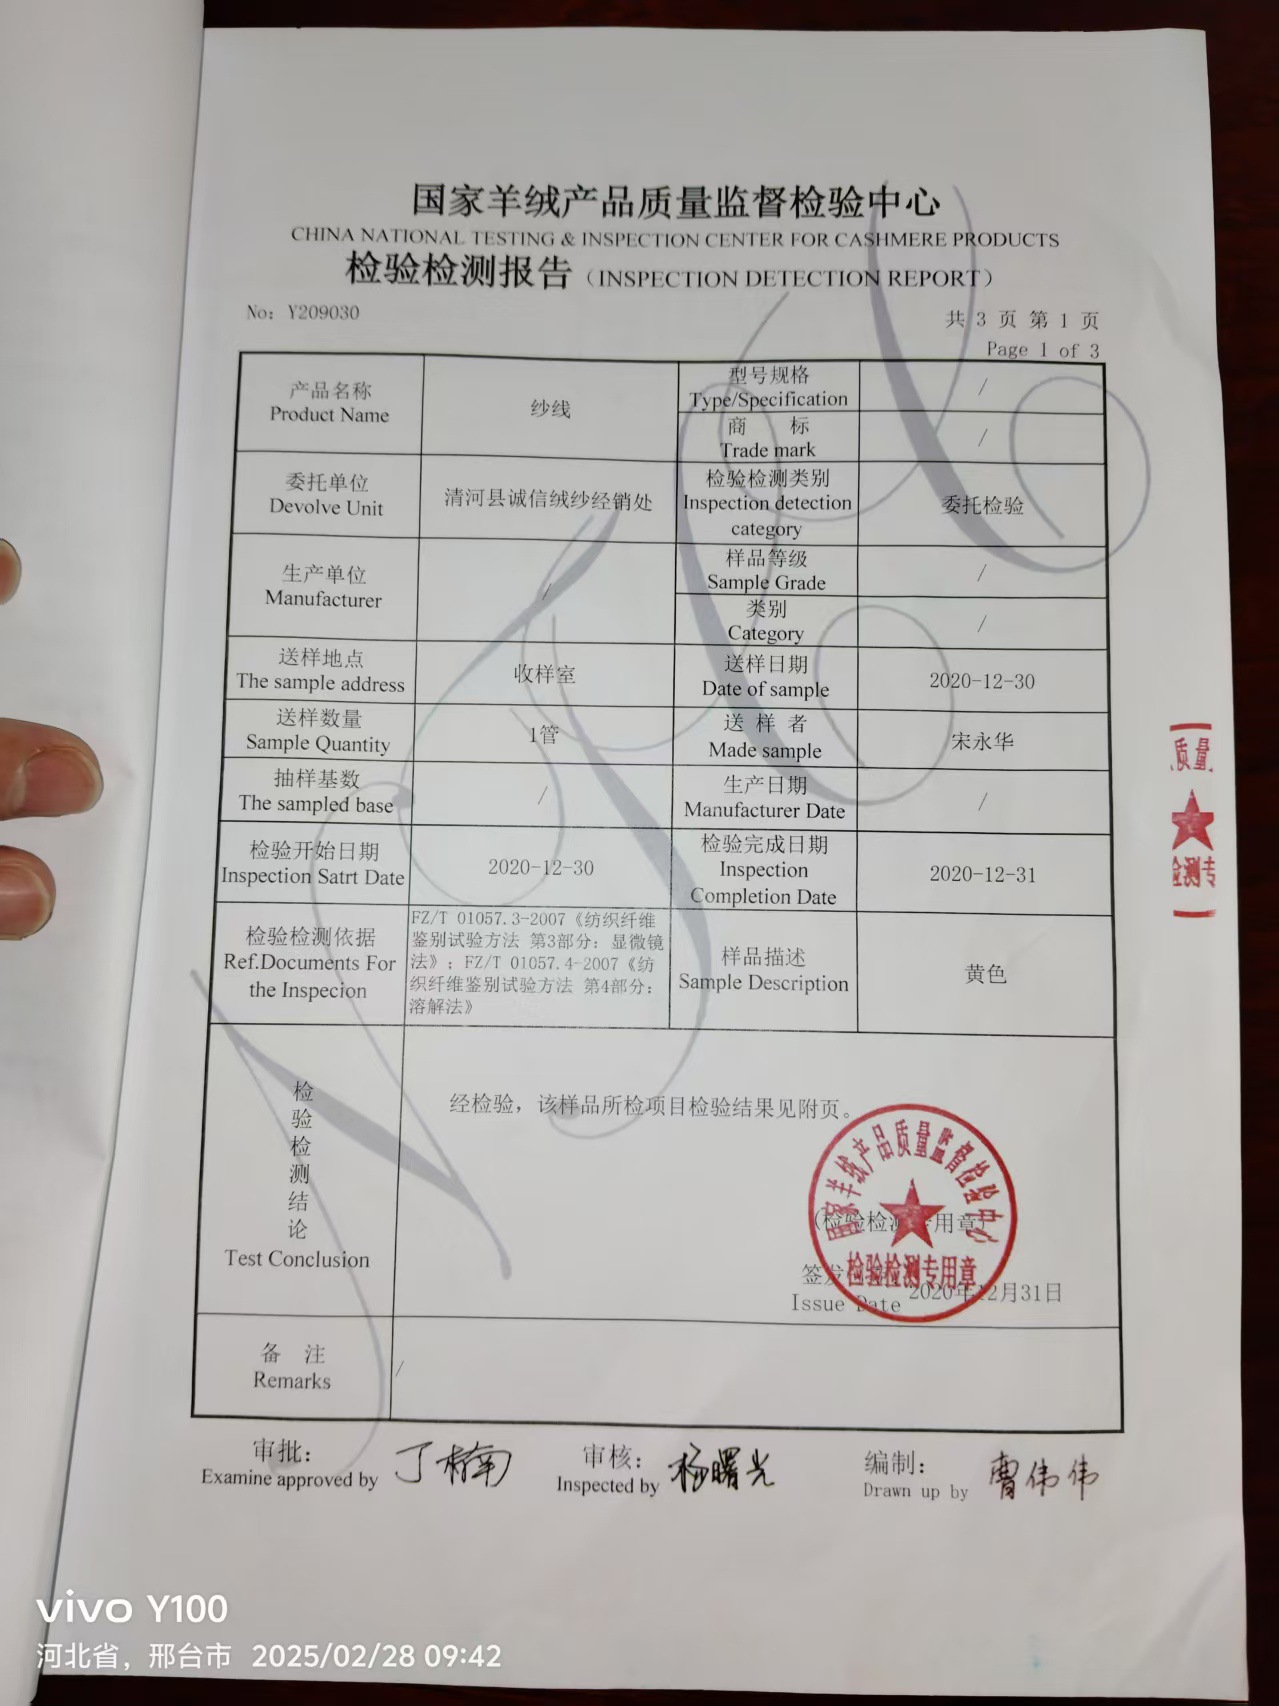 国家羊绒产品质量监督检验中心
CHINA NATIONAL TESTING & INSPECTION CENTER FOR CASHMERE PRODUCTS
检验检测报告（INSPECTION DETECTION REPORT）
No: Y209030
共 3 页 第 1 页
Page 1 of 3
产品名称
Product Name
纱线
型号规格
Type/Specification
/
商 标
Trade mark
/
委托单位
Devolve Unit
清河县诚信绒纱经销处
检验检测类别
Inspection detection
category
委托检验
生产单位
Manufacturer
/
样品等级
Sample Grade
/
类别
Category
/
送样地点
The sample address
收样室
送样日期
Date of sample
2020-12-30
送样数量
Sample Quantity
1管
送 样 者
Made sample
宋永华
抽样基数
The sampled base
/
生产日期
Manufacturer Date
/
检验开始日期
Inspection Satrt Date
2020-12-30
检验完成日期
Inspection
Completion Date
2020-12-31
检验检测依据
Ref.Documents For
the Inspecion
FZ/T 01057.3-2007《纺织纤维
鉴别试验方法 第3部分：显微镜
法》；FZ/T 01057.4-2007《纺
织纤维鉴别试验方法 第4部分：
溶解法》
样品描述
Sample Description
黄色
检
验
检
测
结
论
Test Conclusion
经检验，该样品所检项目检验结果见附页。
国家羊绒产品质量监督检验中心
（检验检测专用章）
检验检测专用章
签发
Issue Date
2020年12月31日
备 注
Remarks
/
审批：
Examine approved by
丁楠
审核：
Inspected by
杨曙光
编制：
Drawn up by
曹伟伟
质量
检测专
vivo Y100
河北省，邢台市 2025/02/28 09:42